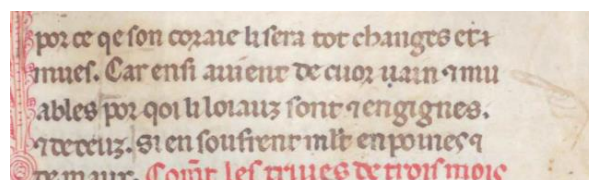 por ce qe son coraie li sera tot changes et ⁊
mues. Car ensi auient de cuor uain ⁊ mu
ables por qoi li loiauz sont ⁊ engignes.
⁊ deceuz. si en soufrent mlt en poines ⁊
de maux. Comt les triues de trois mois